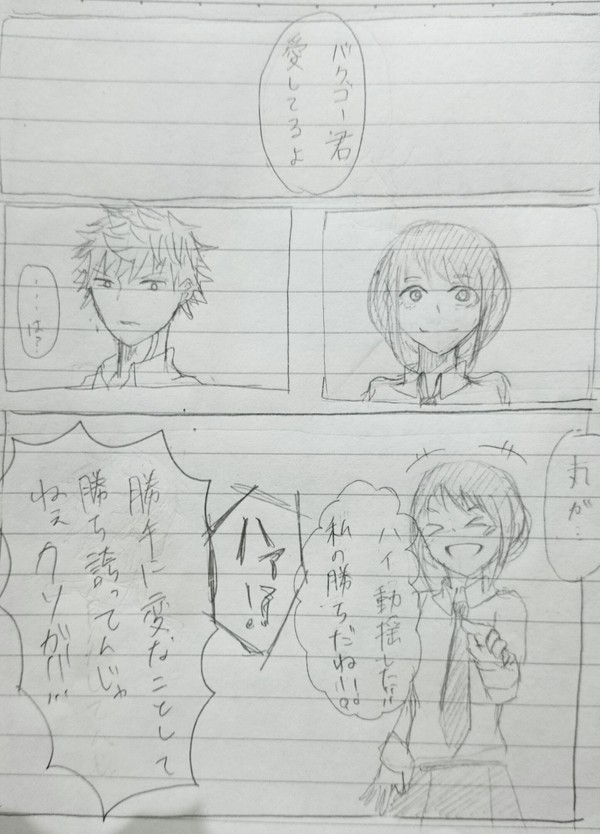 バクゴー君
愛してるよ
・・・・は?
丸が…
ハイ動揺した!!
私の勝ちだね!!
ハァ!?
勝手に変なことして
勝ち誇ってんじゃ
ねぇクソが!!!